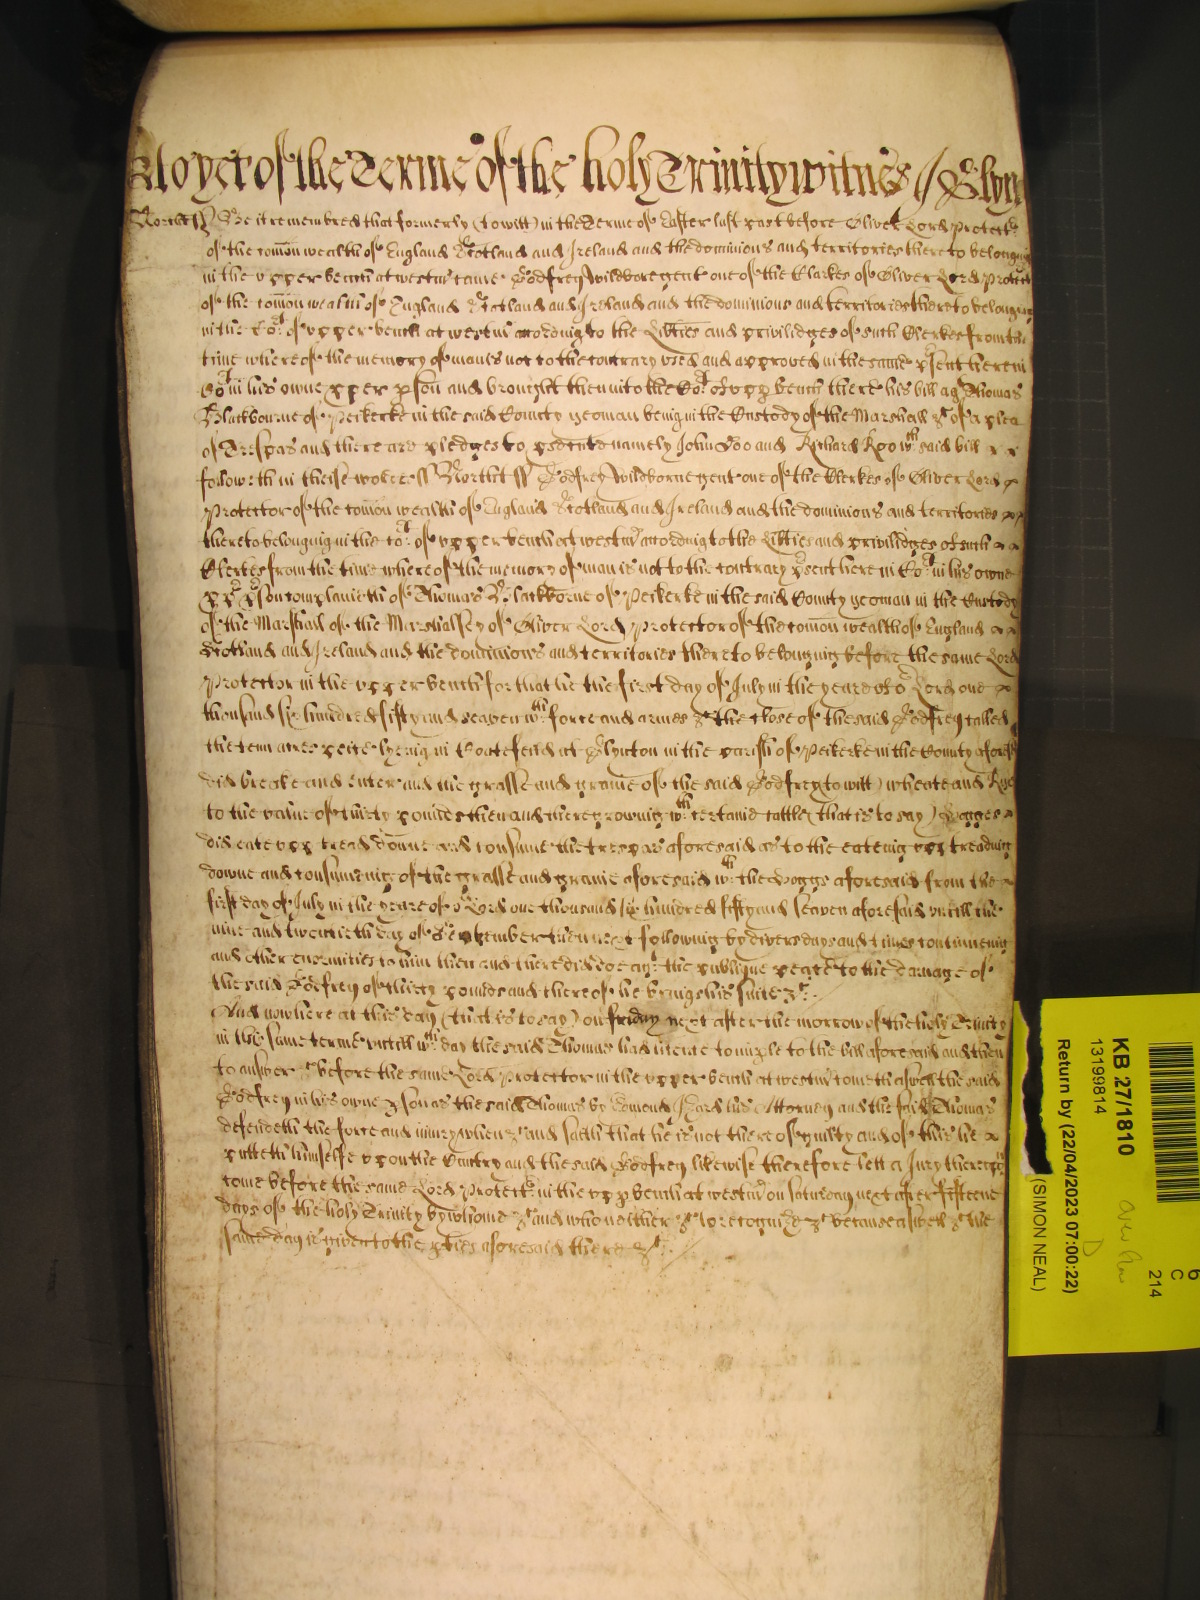 As yet of the Terme of the holy Trinity witnes J Glyn
Northt ss Be it remembred that formerly (to witt) in the Terme of Easter last past before Oliver Lord Protectr
of the comon wealth of England Scotland and Ireland and the dominions and territories there to belonging
in the upper bench at westmr came Godfrey Wildboregent one of the Clarkes of Oliver Lord Protector
of the comon wealth of England Scotland and Ireland and the dominions and territories thereto belonging
in the Cort of upper bench at westmr according to the Libties and priviledges of such Clerkes from the
time whereof the memory of man is not to the contrary used and approved in the same psent here in
Cort in his owne pper pson and brought then into the Cort of upp bench there his bill agt Thomas
Blackbourne of Peikerke in the said County yeoman being in the Custody of the Marshall &c of a plea
of Trespas and there are pledges to psecute namely John Doo and Richard Roo wch said bill
followeth in theise wordes ss Northt ss Godfrey Wildborne gent one of the Clerkes of Oliver Lord
Protector of the comon wealth of England Scotland and Ireland and the dominions and territories
thereto belonging in the Cort of upper bench at westmr according to the Libties and priviledges of such
Clerkes from the time whereof the memory of man is not to the contrary psent here in Cort in his owne
pp pson complaineth of Thomas Blackborne of Peikerke in the said County yeoman in the Custody
of the Marshall of the Marshalsey of Oliver Lord Protector of the comon wealth of England
Scotland and Ireland and the dominions and territories thereto belonging before the same Lord
Protector in the upper bench for that he the first day of July in the yeare of or Lord one
thousand six hundred fifty and seaven wth force and armes &c the close of the said Godfrey called
the tenn acres peice lyeing in at Glynton in the parish of Peikerke in the County aforesd
did breake and enter and the grasse and graine of the said Godfrey (to witt) wheate and Rye
to the value of thirty poundes then and there growing wth certaine cattle (that is to say) Hogges
did eate upp tread downe and consume the trespas aforesaid as to the eateing upp treading
downe and consumeing of the grasse and graine aforesaid wth the Hoggs aforesaid from the
first day of July in the yeare of or Lord one thousand six hundred fifty and seaven aforesaid untill the
nine and twentieth day of September then next following by divers dayes and times continueing
and other enormities to him then and there did doe agt the publique peace to the damage of
the said Godfrey of thirty pounds and thereof he brings his suite &c
And now here at this day (that is to say) on friday next after the morrow of the holy Trinity
in this same terme untill wch day the said Thomas had licence to imple to the bill aforesaid and then
to answer &c before the same Lord Protector in the upper bench at westmr cometh aswell the said
Godfrey in his owne pson as the said Thomas by his Attorney and the said Thomas
defendeth the force and iniury when &c and saith that he is not thereof guilty and of this he
putteth himselfe upon the Cuntry and the said Godfrey likewise therefore lett a Jury thereupon
come before the same Lord Protectr in the upp bench at westmr on saturday next after fifteene
dayes of the holy Trinity by whome &c and who neither &c to recognize &c because aswell &c the
same day is given to the pties aforesaid there &c
KB 27/1810
13199814
Return by (22/04/2023 07:00:22)
(SIMON NEAL)
D
6
C
214